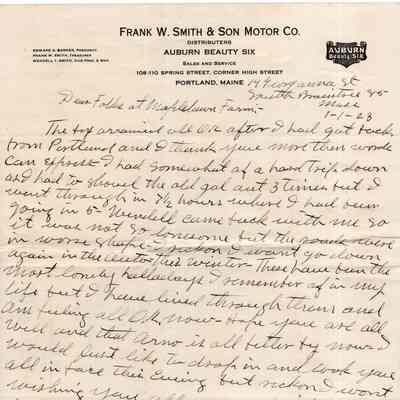 FRANK W. SMITH & SON MOTOR CO.
DISTRIBUTERS
AUBURN BEAUTY SIX
SALES AND SERVICE
108-110 SPRING STREET, CORNER HIGH STREET
PORTLAND, MAINE
EDWARD S. BARKER, PRESIDENT
FRANK W. SMITH, TREASURER
WENDELL T. SMITH, VICE PRES. & MGR
AUBURN
Beauty SIX
14 Georganna St
South Braintree 85
Mass
1-1-23
Dear Folks at Maplelawn Farm,-
The box arrived all OK after I had got back
from Portland and I thank you more than words
can express I had somewhat of a hard trip down
as had to shovel the old gal out 3 times but I
went through in 7½ hours where I had been
going in 5- Wendell came back with me so
it was not so lonesome but the roads were
in worse shape I reckon I wont go down
again in the auto this winter These have been the
most lonely holladays I remember of in my
life but I have lived through them and
am feeling all OK now Hope you are all
well and that Arno is all better by now I
would just like to drop in and look you
all in face this Evening but reckon I wont
wishing you all